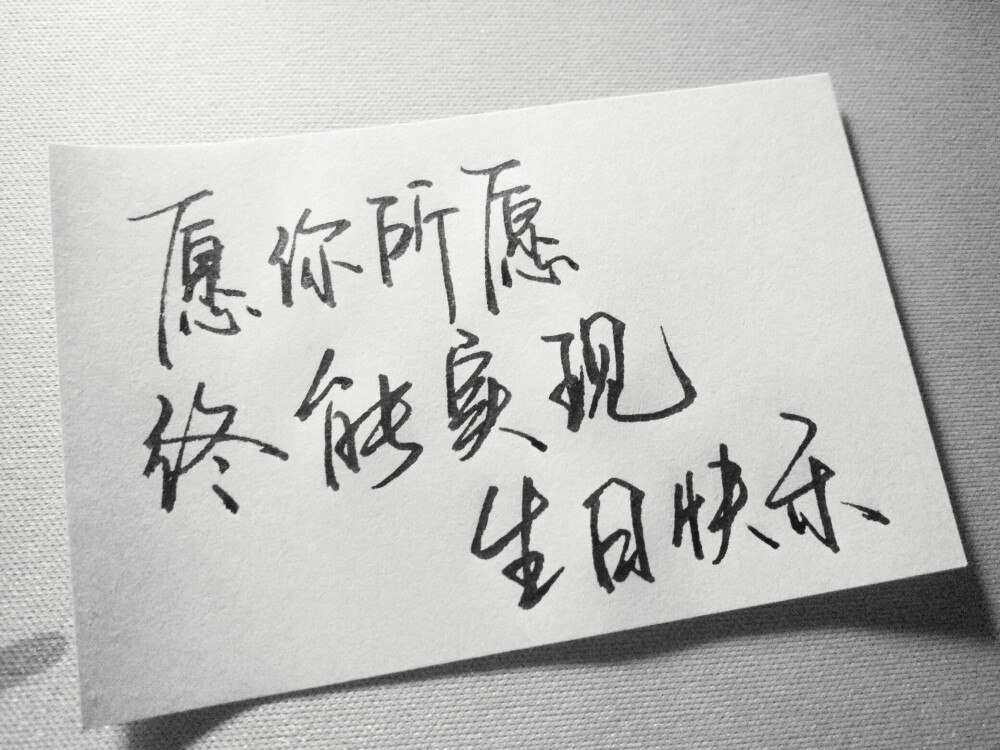 愿你所愿
终能实现
生日快乐